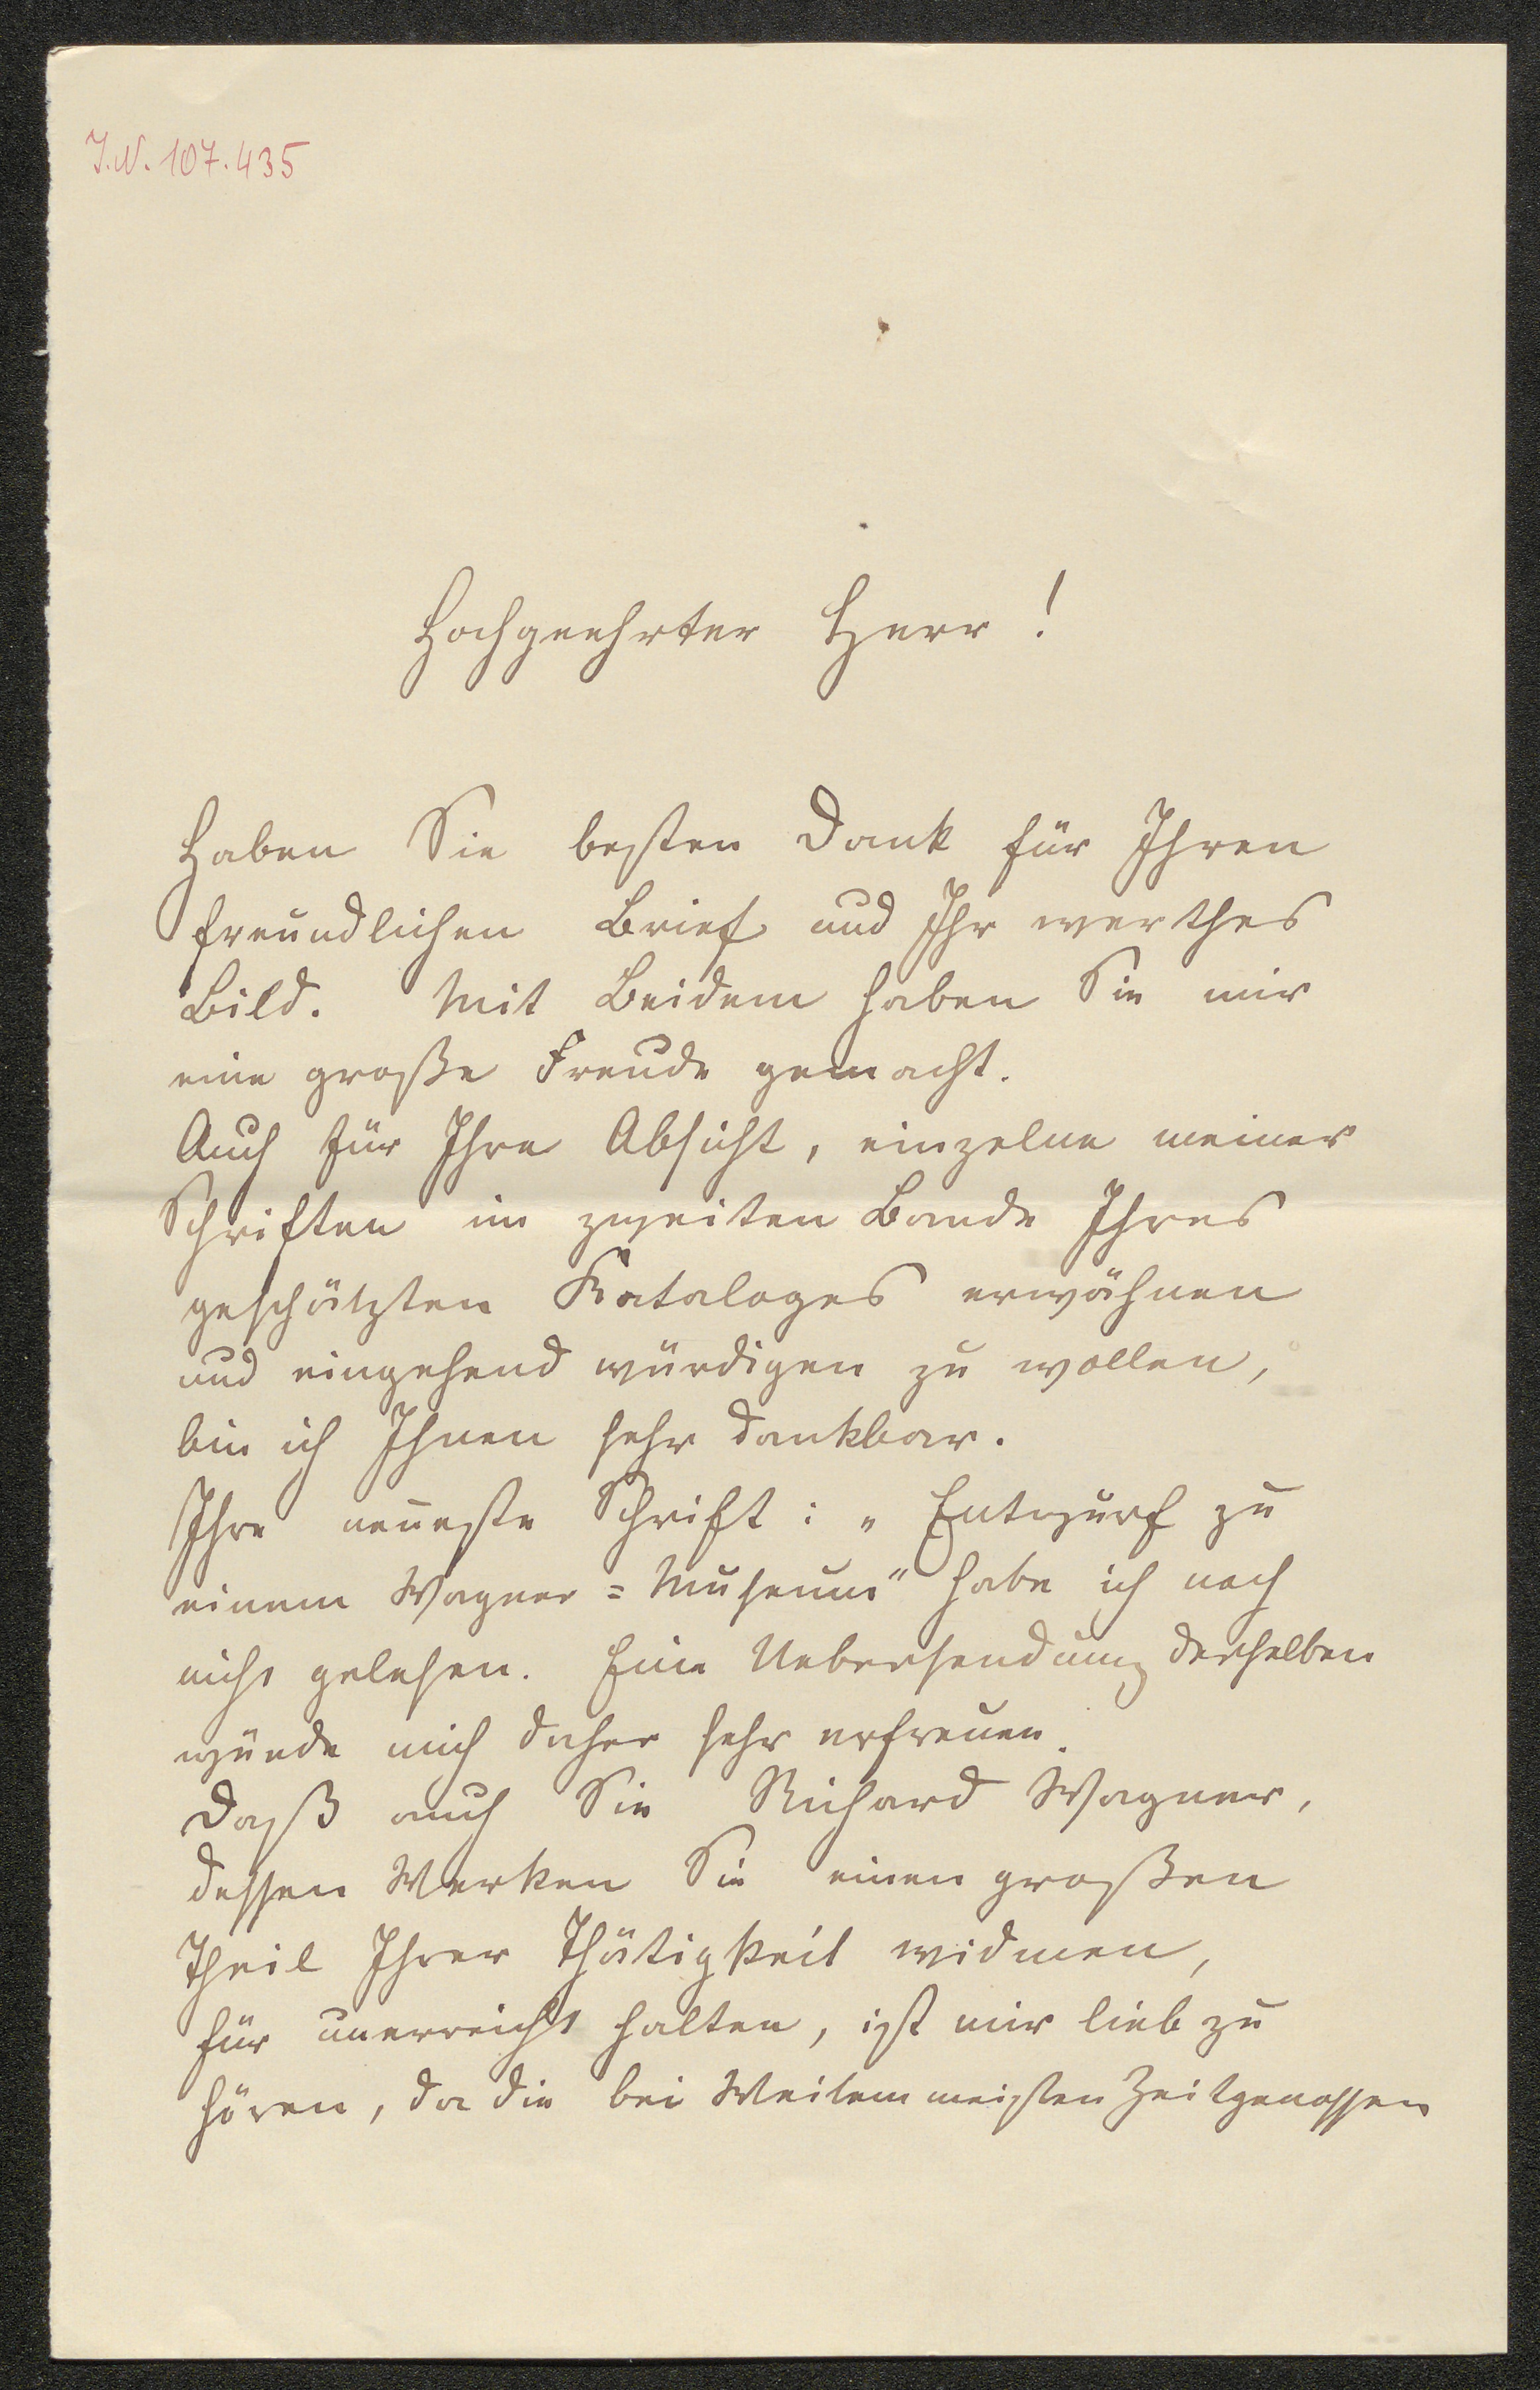 J.N. 107.435
Hochgeehrter Herr!
Haben Sie besten Dank für Ihren
freundlichen Brief und Ihr werthes
Bild. Mit Beidem haben Sie mir
eine große Freude gemacht.
Auch für Ihre Absicht, einzelne meiner
Schriften im zweiten Bande Ihres
geschätzten Kataloges erwähnen
und eingehend würdigen zu wollen,
bin ich Ihnen sehr dankbar.
Ihre neueste Schrift: „Entwurf zu
einem Wagner=Museum" habe ich noch
nicht gelesen. Eine Uebersendung derselben
würde mich daher sehr erfreuen.
Daß auch Sie Richard Wagner,
dessen Werken Sie einen großen
Theil Ihrer Thätigkeit widmen,
für unerreicht halten, ist mir lieb zu
hören, da die bei Weitem meisten Zeitgenossen